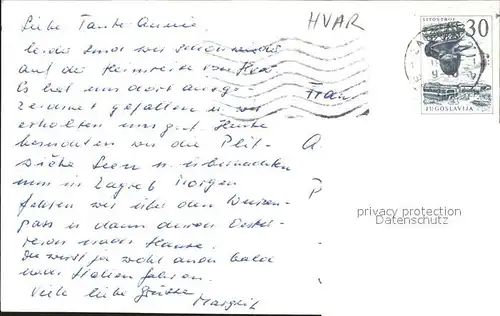 Liebe Tante Annie,
leider sind wir schon wieder
auf der Heimreise von Hvar
Es hat uns dort ausge-
zeichnet gefallen u. wir
erholten uns gut. Heute
besuchten wir die Plit-
witzer Seen u. übernachten
nun in Zagreb. Morgen
fahren wir über den Wurzen-
pass u. dann durch Öster-
reich nach Hause.
Du wirst ja wohl auch bald
nach Italien fahren.
Viele liebe Grüße
Margrit
HVAR
Frau
A
P
LITOSTROJ
30
JUGOSLAVIJA
privacy protection
Datenschutz